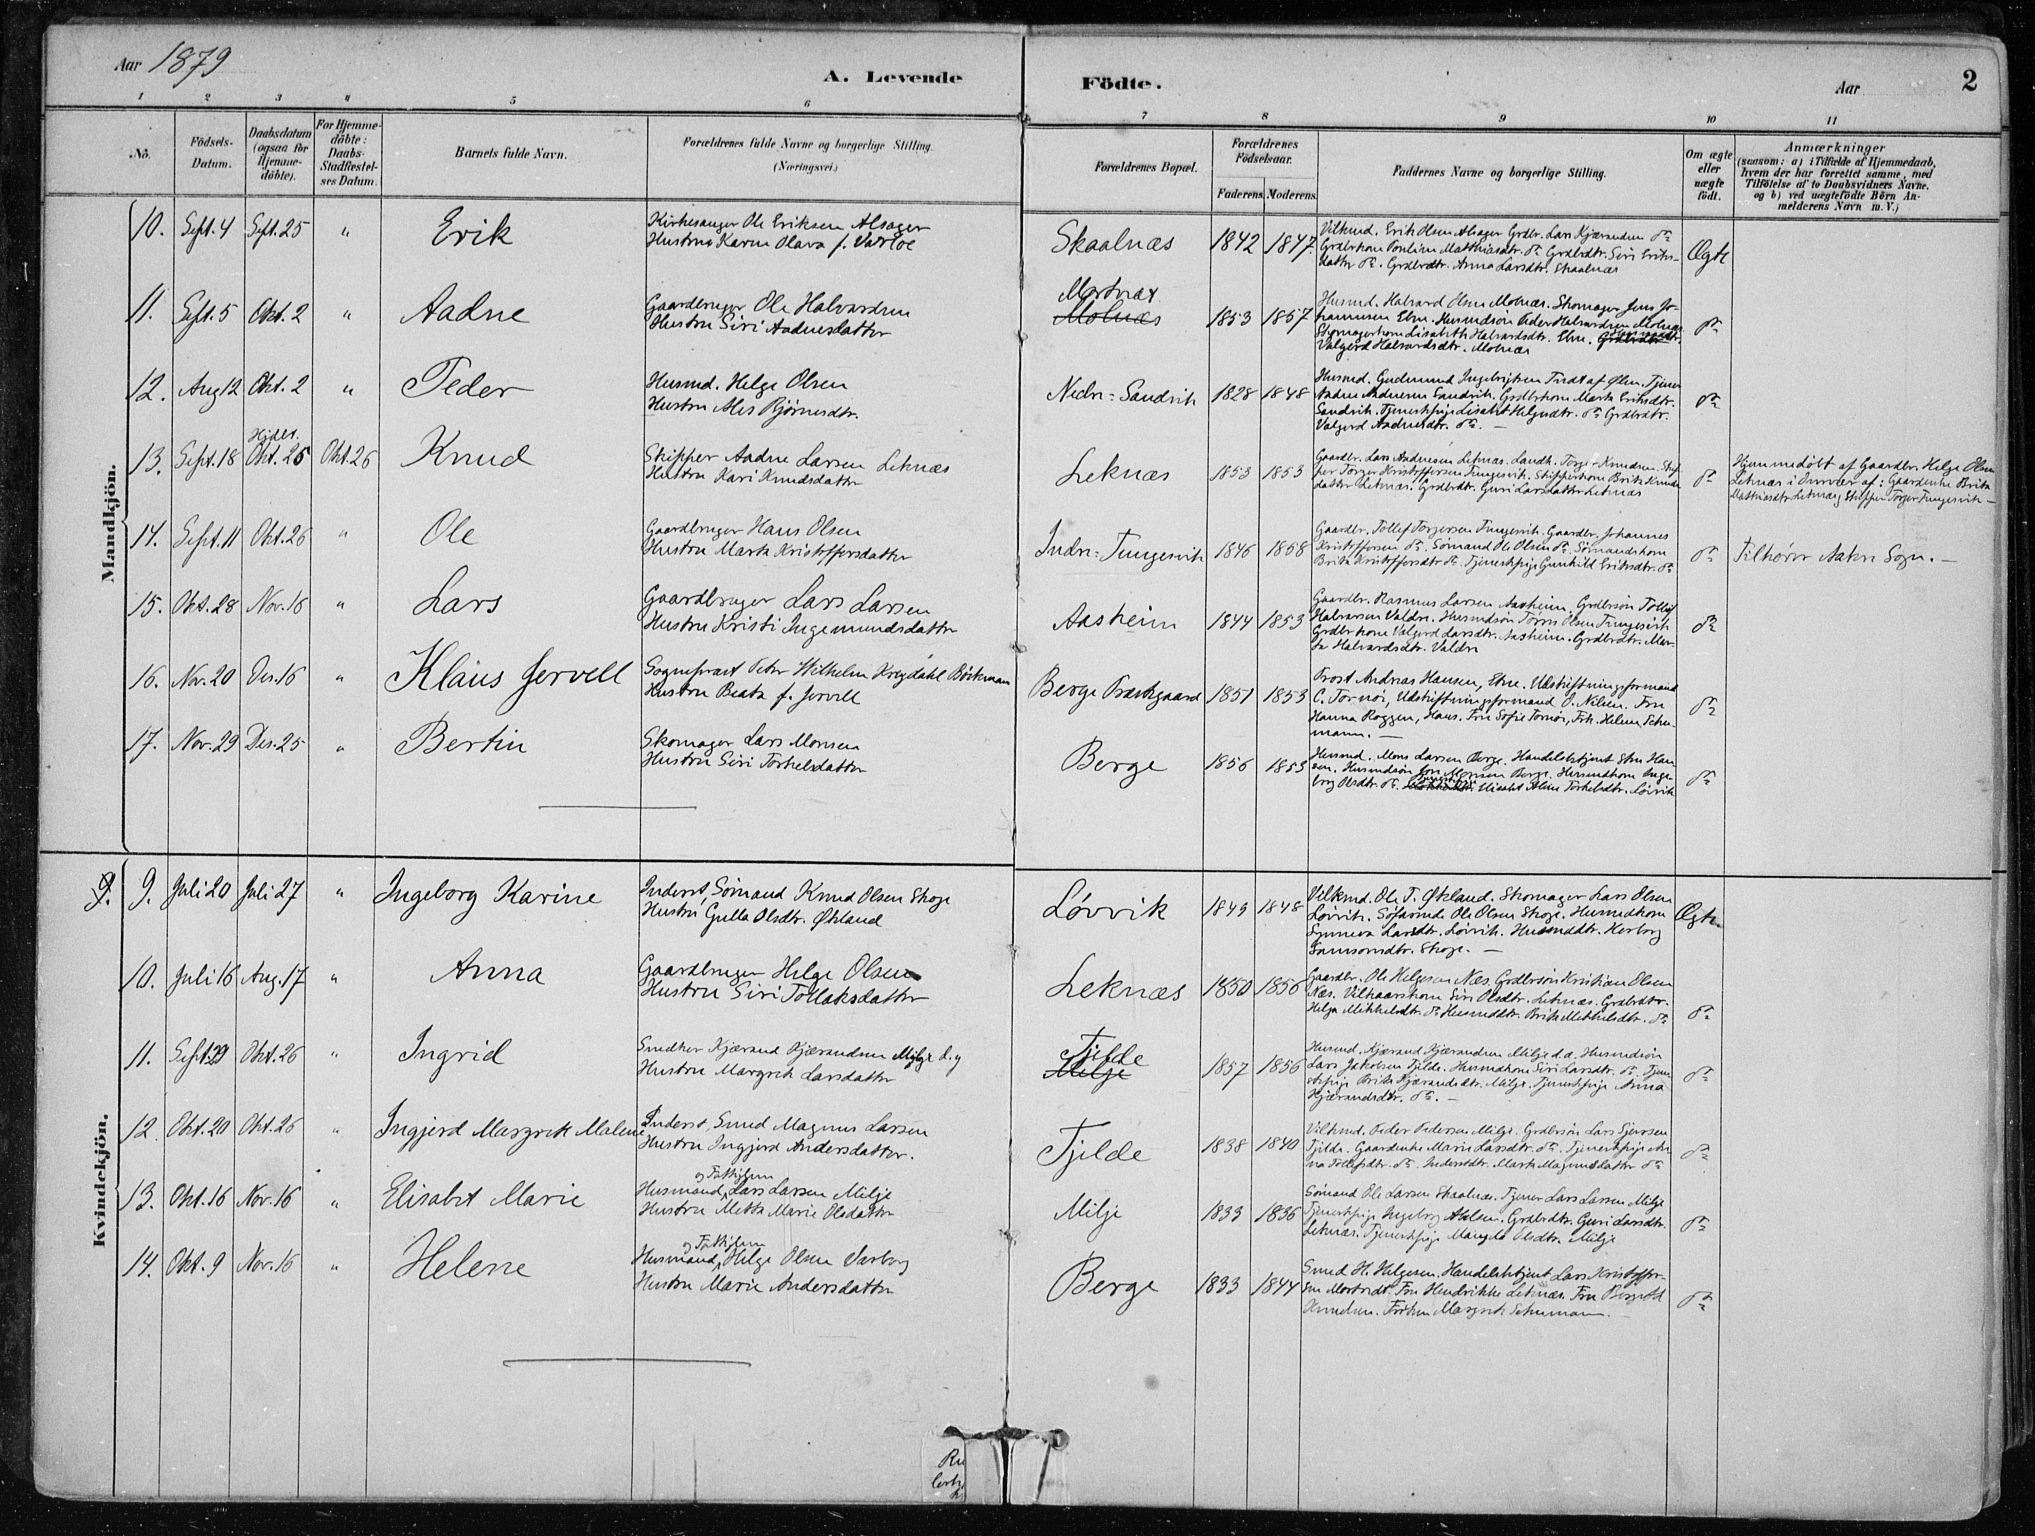 Aar 1879
A. Levende Födte.
Aar 2
1 2 3 4 5 6 7 8 9 10 11
No.
Födsels-Datum.
Daabsdatum (ogsaa for Hjemme-döbte).
For Hjemme-döbte: Daabs-Stadfæstel-ses Datum.
Barnets fulde Navn.
Forældrenes fulde Navne og borgerlige Stilling. (Næringsvei.)
Forældrenes Bopæl.
Forældrenes Födselsaar.
Faderens. Moderens.
Faddernes Navne og borgerlige Stilling.
Om ægte eller uægte födt.
Anmærkninger
(saasom: a) i Tilfælde af Hjemmedaab,
hvem der har forrettet samme, med
Tilföielse af to Daabsvidners Navne.
og b) ved uægtefödte Börn An-
melderens Navn m. V.)
Mandkjön.
10. Sept. 4 Sept. 25 " Erik
Kirkesanger Ole Eriksen Alsager
Hustru Karen Olava f. Varloe
Skaalnæs 1842 1847.
Vilkmd. Erik Olsen Alsager Grdbr. Lars Kjærandsen do
Grdbrkone Pouline Matthiasdtr. do Grdbrdtr. Siri Eriks-
datter do. Grdbrdtr. Anna Larsdtr. Skaalnæs
Ægte
11. Sept. 5 Okt. 2 " Aadne
Gaardbruger Ole Halvardsen
Hustru Siri Aadnesdatter
Molnæs 1853 1857
Husmd. Halvard Olsen Molnæs. Skomager Jens Jo-
hannessen Etne. Husmdsøn Peder Halvardsen Molnæs
Skomagerkone Lisabeth Halvardsdtr. Etne.
Valgerd Halvardsdtr. Molnæs
do
12. Aug 12 Okt. 2 " Peder
Husmd. Helge Olsen
Hustru Ales Bjørnesdtr.
Nedre-Sandvik 1828 1848
Husmd. Gudmund Ingebrigtsen Tindt af Ølen. Tjener
Aadne Aadnesen Sandvik. Grdbrkone Marta Eriksdtr.
Sandvik. Tjenestepige Lisabet Helgesdtr. do Grdbrdtr.
Valgerd Aadnesdtr. do. —
do
13. Sept. 18 Hjdbt. Okt. 25 Okt. 26 Knud
Skipper Aadne Larsen Leknæs
Hustru Kari Knudsdatter
Leknæs 1853 1853
Gaardbr. Lars Andreasen Leknæs. Landh. Torger Knudsen. Skip-
per Torger Kristoffersen Tungesvik. Skipperkone Brita Knuds-
datter Leknæs. Grdbrdtr. Guri Larsdatter Leknæs
do
Hjemmedøbt af Gaardbr. Helge Olsen
Leknæs i Overvær af: Gaardenke Brita
Matthiasdtr Leknæs, Skipper Torger Tungesvik —
14. Sept. 11 Okt. 26 " Ole
Gaardbruger Hans Olsen
Hustru Marta Kristoffersdatter
Indre-Tungesvik 1846 1858
Gaardbr. Tollef Torgersen Tungesvik. Gaardbr. Johannes
Kristoffersen do. Sømand Ole Olsen do. Sømandskone
Brita Kristoffersdtr do. Tjenestepige Gunhild Eriksdtr. do
do
Tilhører Aakre Sogn. —
15. Okt. 28 Nov. 16 " Lars
Gaardbruger Lars Larsen
Hustru Kristi Ingemundsdatter
Aasheim 1844 1853
Gaardbr. Rasmus Larsen Aasheim. Grdbrsøn Tollef
Halvorsen Valdre. Husmdsøn Torris Olsen Tungesvik
Grdbrkone Valgerd Larsdtr. Aasheim. Grdbrdtr. Mar-
ta Halvardsdtr. Valdre
do
16. Nov. 20 Des. 16 " Klaus Jervell
Sognepræst Peter Wilhelm Kreydahl Böckman
Hustru Beata f. Jervell
Berge Præstegaard 1851 1853
Prost Andreas Hansen, Etne. Udskiftningsformand
C. Tornöi, Udskiftningsformand O. Nilsen. Fru
Hanna Roggen, Haus. Fru Sofie Tornöi, Frk. Helene Schu-
mann. —
do
17. Nov. 29 Des. 25 " Bertin
Skomager Lars Monsen
Hustru Siri Torkelsdatter
Berge 1856 1853
Husmd. Mons Larsen Berge. Handelsbetjent Sten Han-
sen. Husmdsøn Jon Monsen Berge. Husmdkone Inge-
borg Olsdtr. do. Elisabet Aline Torkelsdtr. Løvvik
do
Kvindekjön.
9. 9. Juli 20 Juli 27 " Ingeborg Karine
Inderst, Sømand Knud Olsen Skoge
Hustru Gulla Olsdtr. Økland
Løvvik 1849 1848
Vilkmd. Ole T. Økland. Skomager Lars Olsen
Løvvik. Søfarende Ole Olsen Skoge. Husmdkone
Synneva Larsdtr. Løvvik. Husmddtr. Herborg
Samsonsdtr. Skoge. —
Ægte
10. Juli 16 Aug. 17 " Anna
Gaardbruger Helge Olsen
Hustru Siri Tollaksdatter
Leknæs 1850 1856
Gaardbr. Ole Helgesen Næs. Grdbrsøn Kristian Olsen
Næs. Vilkaarskone Siri Olsdtr. Leknæs. Grdbrdtr.
Helga Mikkelsdtr. do Husmddtr. Brita Mikkelsdtr. do
do
11. Sept. 29 Okt. 26 " Ingrid
Snedker Kjærand Kjærandsen Milje d. y
Hustru Margrete Larsdatter
Tjelde
Milje 1857 1856
Husmd. Kjærand Kjærandsen Milje d.æ. Husmdsøn
Lars Jakobsen Tjelde. Husmdkone Siri Larsdtr. do. Tjene-
stepige Brita Kjærandsdtr. Milje. Tjenestepige Anna
Kjærandsdtr. do. —
do
12. Okt. 20 Okt. 26 " Ingjerd Margrete Malene
Inderst, Smed Magnus Larsen
Hustru Ingjerd Andersdatter.
Tjelde 1838 1840
Vilkmd. Peder Pedersen Milje. Grdbrsøn Lars Sjursen
Tjelde. Gaardenke Marie Larsdtr. do. Tjenestepige An-
na Tollefsdtr. do. Inderstdtr. Marta Magnusdatter do
do
13. Okt. 16 Nov. 16 " Elisabet Marie
og Fattiglem
Husmand, Lars Larsen Milje
Hustru Metta Marie Olsdatter
Milje 1833 1836
Sømand Ole Larsen Skaalnæs. Tjener Lars Larsen Milje
Tjenestepige Ingeborg Olsen. Grdbrdtr. Guri Larsdtr.
Leknæs. Tjenestepige Margta Olsdtr. Milje
do
14. Okt. 9 Nov. 16 " Helene
og Fattiglem
Husmand, Helge Olsen Varberg
Hustru Marie Andersdatter
Berge 1833 1844
Smed H. Helgesen. Handelsbetjent Lars Kristoffer-
sen Mortvedt. Fru Hendrikke Leknæs. Fru Bergitte
Knudsen. Frøken Margrete Schumann. —
do